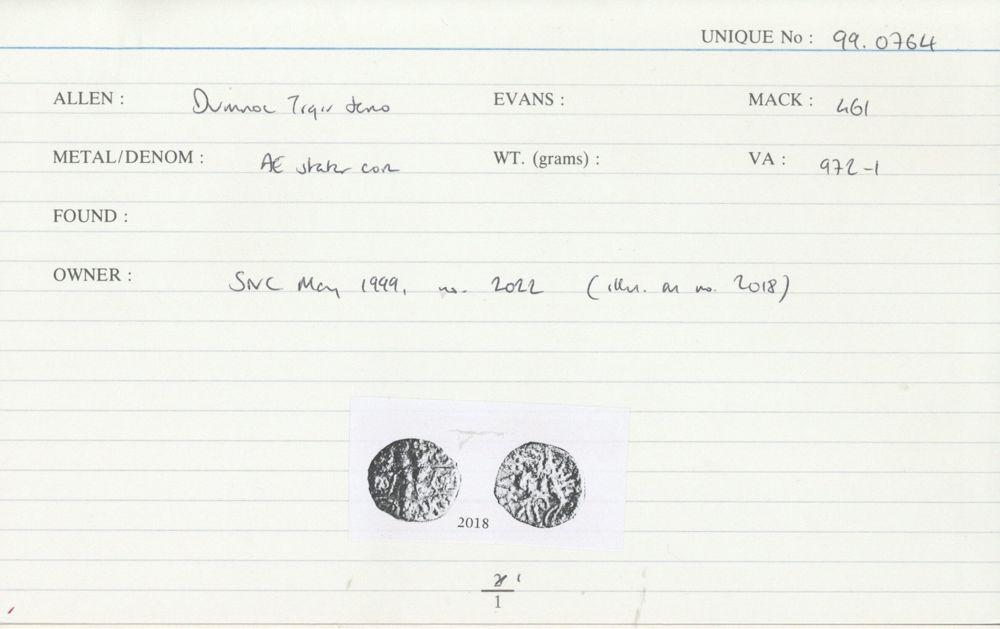 UNIQUE No : 99.0764
ALLEN : Dumnoc Tigir Seno EVANS : MACK : 461
METAL/DENOM : AE stater core WT. (grams) : VA : 972-1
FOUND :
OWNER : SNC May 1999, no. 2022 (illus. as no. 2018)
2018
1